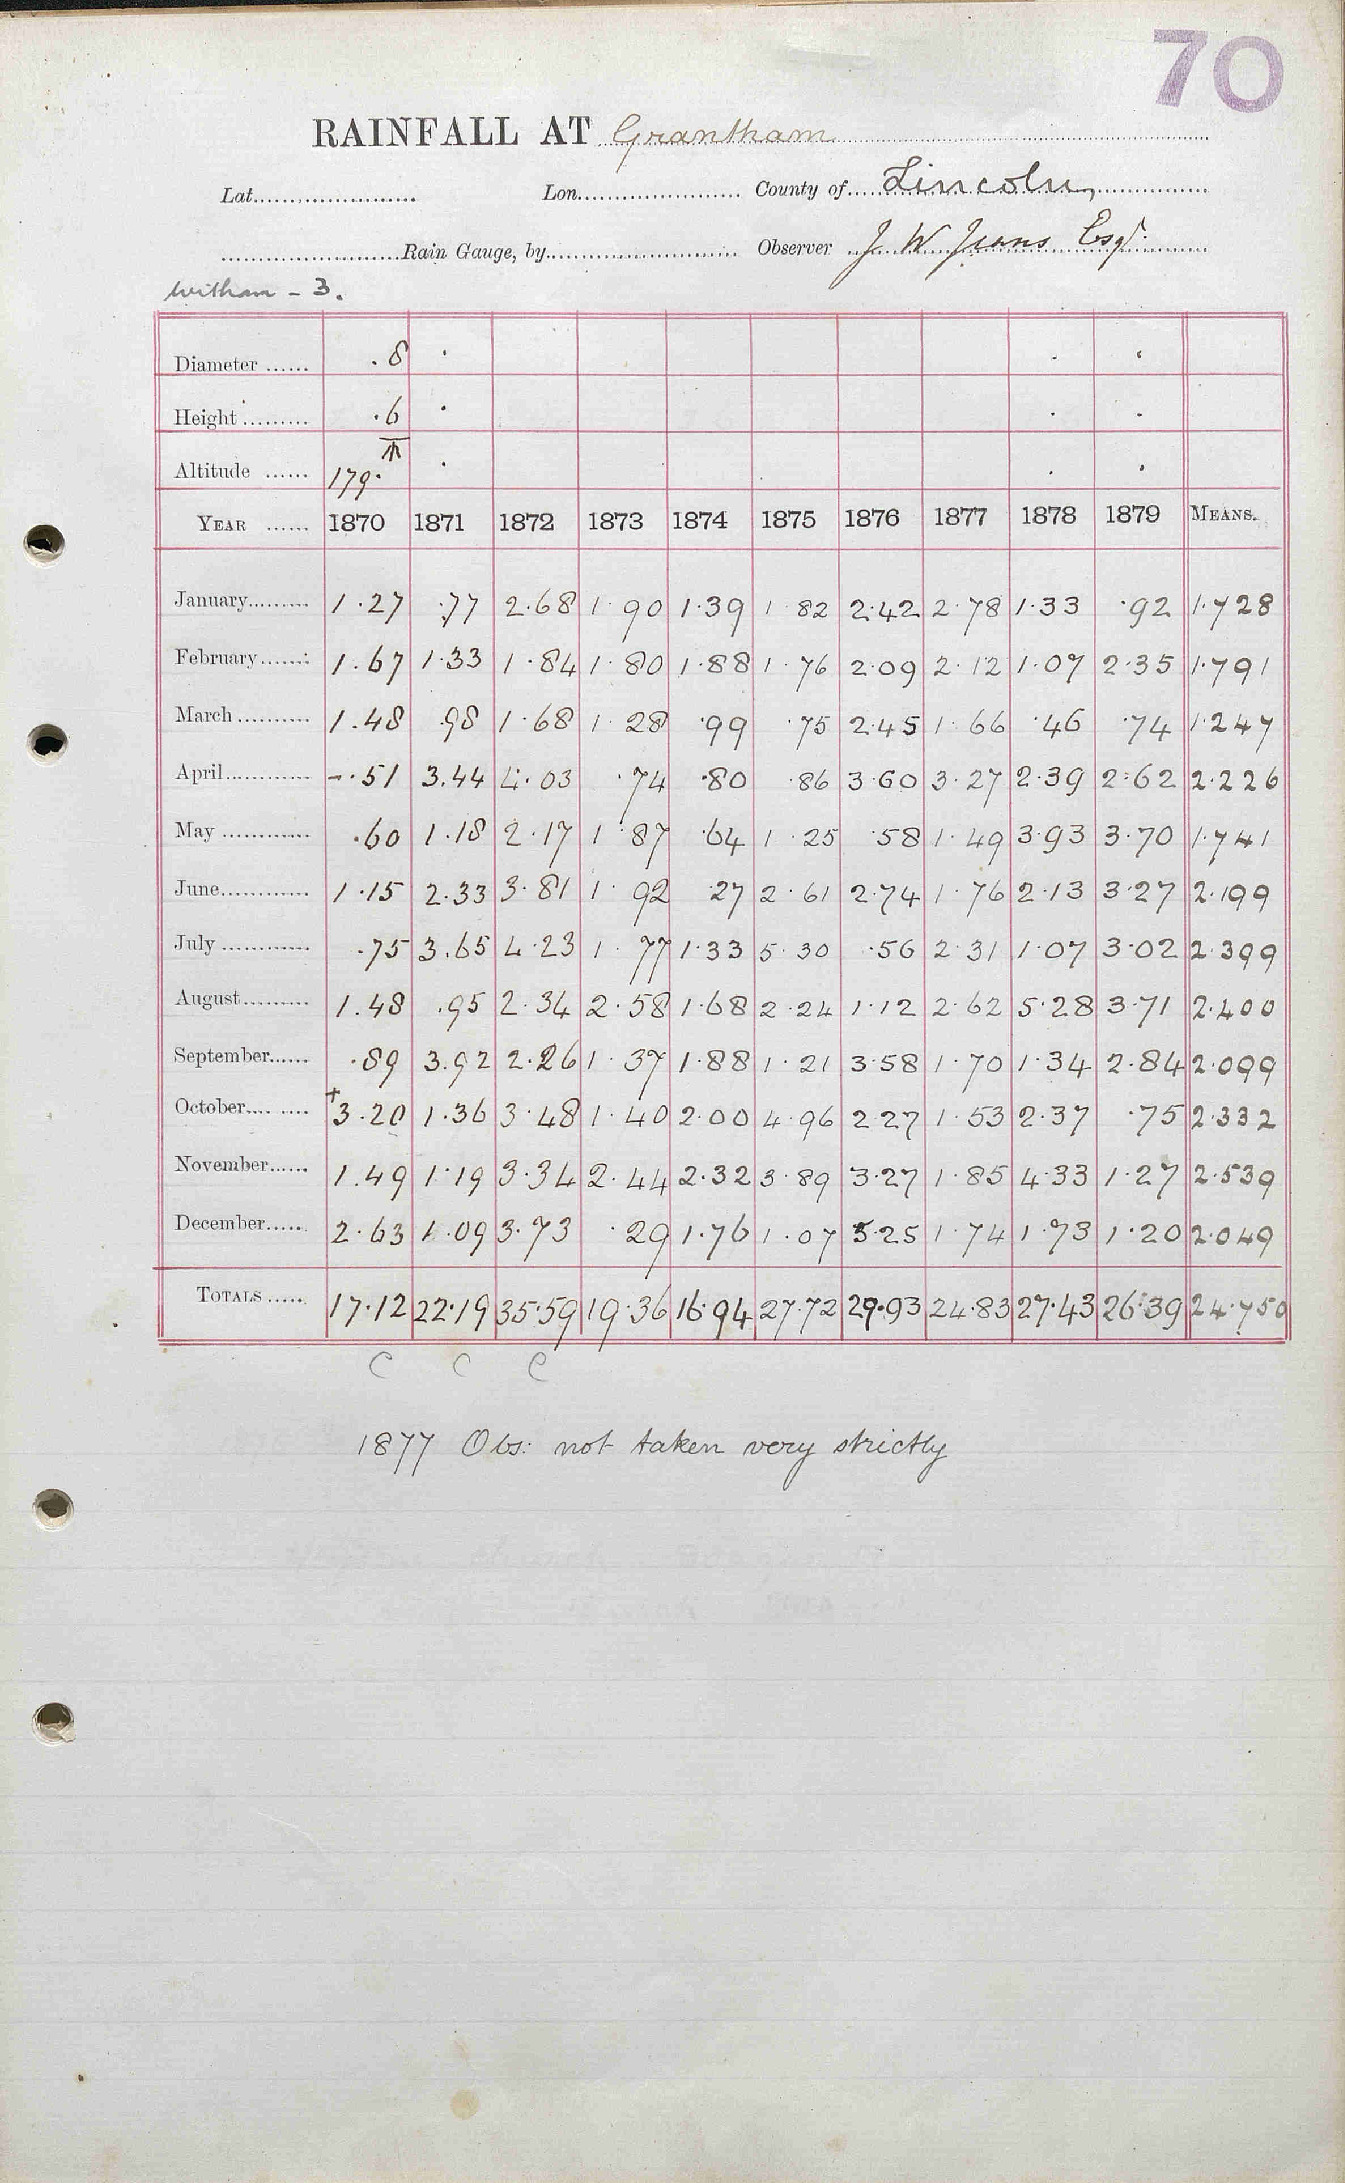 70
RAINFALL AT Grantham
Lat. Lon. County of Lincoln,
Rain Gauge, by Observer J. W. Jeans Esqr.
Witham - 3.
Diameter ...... .8
Height ......... .6
Altitude ...... 179.
YEAR ...... 1870 1871 1872 1873 1874 1875 1876 1877 1878 1879 MEANS.
January......... 1.27 .77 2.68 1.90 1.39 1.82 2.42 2.78 1.33 .92 1.728
February....... 1.67 1.33 1.84 1.80 1.88 1.76 2.09 2.12 1.07 2.35 1.791
March .......... 1.48 .98 1.68 1.28 .99 .75 2.45 1.66 .46 .74 1.247
April............ -.51 3.44 4.03 .74 .80 .86 3.60 3.27 2.39 2.62 2.226
May ............ .60 1.18 2.17 1.87 .64 1.25 .58 1.49 3.93 3.70 1.741
June............ 1.15 2.33 3.81 1.92 .27 2.61 2.74 1.76 2.13 3.27 2.199
July ............ .75 3.65 4.23 1.77 1.33 5.30 .56 2.31 1.07 3.02 2.399
August.......... 1.48 .95 2.34 2.58 1.68 2.24 1.12 2.62 5.28 3.71 2.400
September...... .89 3.92 2.26 1.37 1.88 1.21 3.58 1.70 1.34 2.84 2.099
October.... ..... +3.20 1.36 3.48 1.40 2.00 4.96 2.27 1.53 2.37 .75 2.332
November...... 1.49 1.19 3.34 2.44 2.32 3.89 3.27 1.85 4.33 1.27 2.539
December...... 2.63 1.09 3.73 .29 1.76 1.07 5.25 1.74 1.73 1.20 2.049
TOTALS ..... 17.12 22.19 35.59 19.36 16.94 27.72 29.93 24.83 27.43 26.39 24.750
C C C
1877 Obs: not taken very strictly